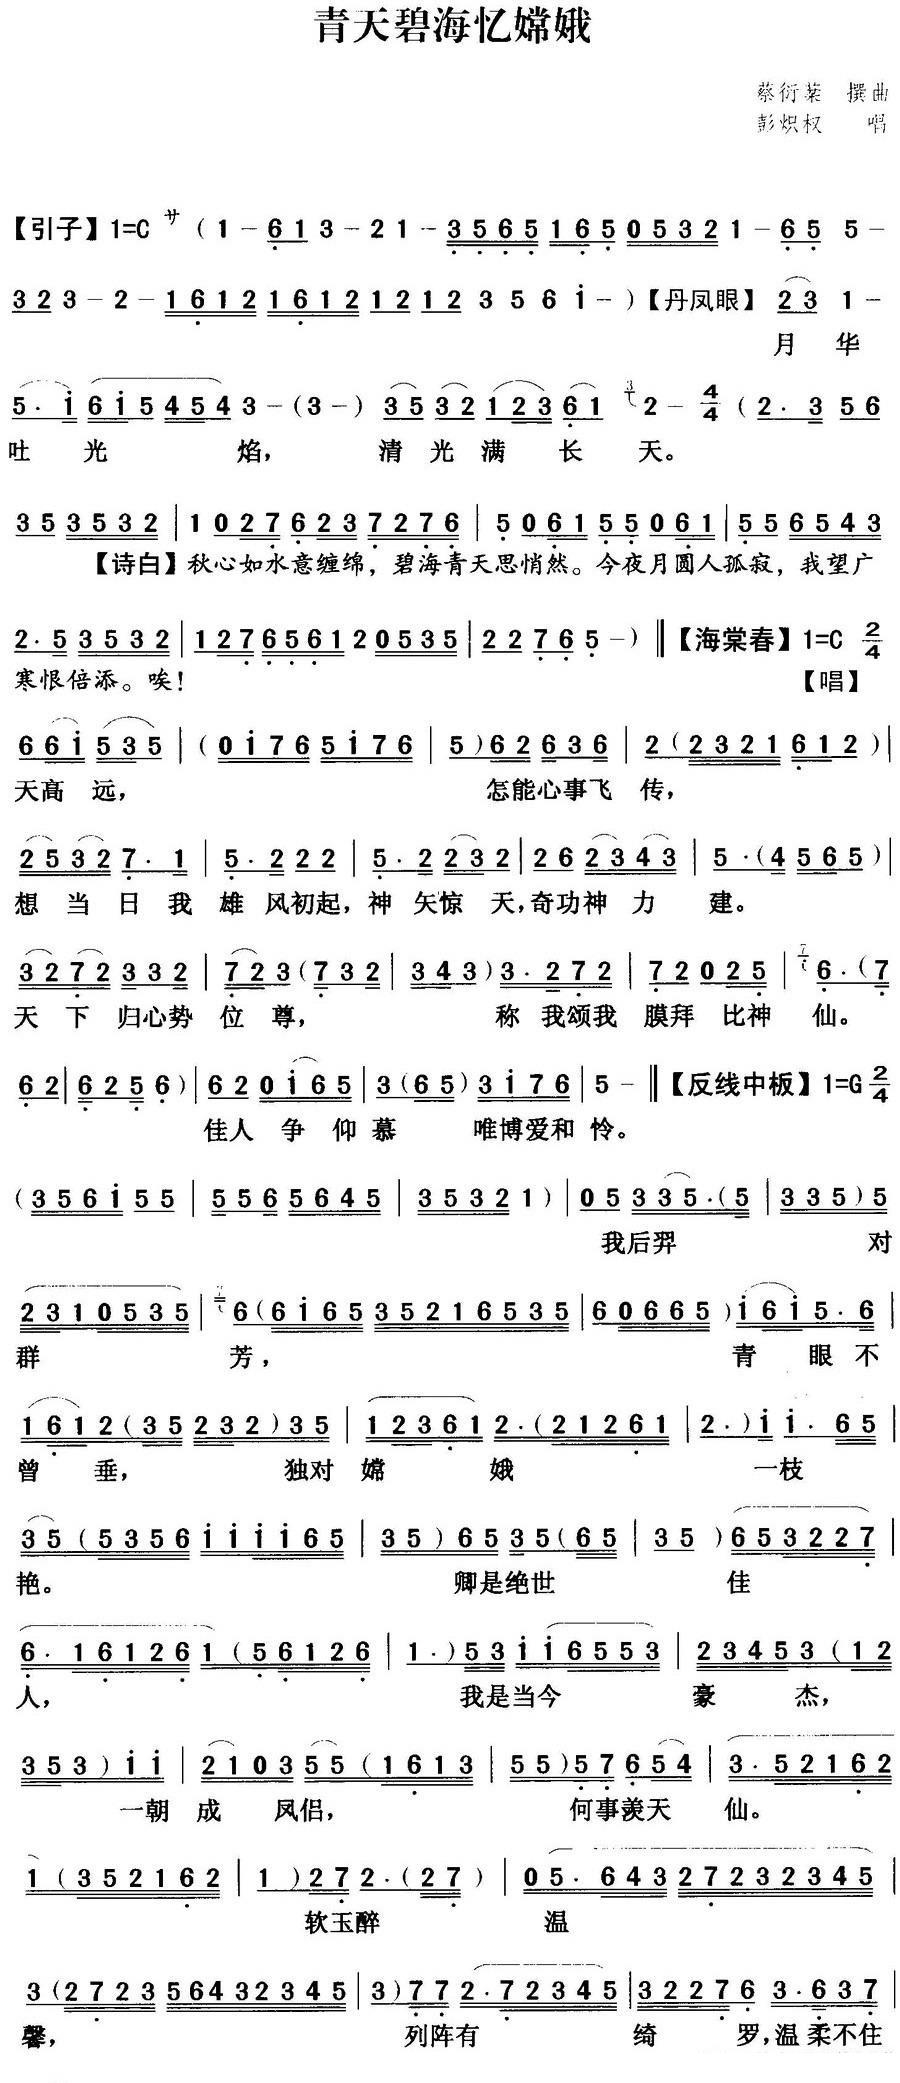 青天碧海忆嫦娥
蔡衍棻 撰曲
彭炽权 唱
【引子】1=C サ ( 1 - 6 1 3 - 2 1 - 3 5 6 5 1 6 5 0 5 3 2 1 - 6 5 5 -
3 2 3 - 2 - 1 6 1 2 1 6 1 2 1 2 1 2 3 5 6 i - ) 【丹凤眼】 2 3 1 -
月 华
5 . i 6 i 5 4 5 4 3 - ( 3 - ) 3 5 3 2 1 2 3 6 1 3 2 - 4/4 ( 2 . 3 5 6
吐 光 焰， 清 光 满 长 天。
3 5 3 5 3 2 | 1 0 2 7 6 2 3 7 2 7 6 | 5 0 6 1 5 5 0 6 1 | 5 5 6 5 4 3
【诗白】秋心如水意缠绵，碧海青天思悄然。今夜月圆人孤寂，我望广
2 . 5 3 5 3 2 | 1 2 7 6 5 6 1 2 0 5 3 5 | 2 2 7 6 5 - ) ‖ 【海棠春】1=C 2/4
寒恨倍添。唉！ 【唱】
6 6 i 5 3 5 | ( 0 i 7 6 5 i 7 6 | 5 ) 6 2 6 3 6 | 2 ( 2 3 2 1 6 1 2 ) |
天高 远， 怎能心事飞 传，
2 5 3 2 7 . 1 | 5 . 2 2 2 | 5 . 2 2 3 2 | 2 6 2 3 4 3 | 5 . ( 4 5 6 5 ) |
想 当 日 我 雄 风初起，神 矢惊 天，奇功神 力 建。
3 2 7 2 3 3 2 | 7 2 3 ( 7 3 2 | 3 4 3 ) 3 . 2 7 2 | 7 2 0 2 5 | 7 6 . ( 7
天 下 归心势 位 尊， 称 我颂我 膜拜 比神 仙。
6 2 | 6 2 5 6 ) | 6 2 0 i 6 5 | 3 ( 6 5 ) 3 i 7 6 | 5 - ‖ 【反线中板】1=G 2/4
佳人 争 仰 慕 唯博爱和 怜。
( 3 5 6 i 5 5 | 5 5 6 5 6 4 5 | 3 5 3 2 1 ) | 0 5 3 3 5 . ( 5 | 3 3 5 ) 5
我后羿 对
2 3 1 0 5 3 5 | 6 ( 6 i 6 5 3 5 2 1 6 5 3 5 | 6 0 6 6 5 ) i 6 i 5 . 6 |
群 芳， 青 眼 不
1 6 1 2 ( 3 5 2 3 2 ) 3 5 | 1 2 3 6 1 2 . ( 2 1 2 6 1 | 2 . ) i i . 6 5 |
曾 垂， 独对 嫦 娥 一枝
3 5 ( 5 3 5 6 i i i i 6 5 | 3 5 ) 6 5 3 5 ( 6 5 | 3 5 ) 6 5 3 2 2 7 |
艳。 卿是绝世 佳
6 . 1 6 1 2 6 1 ( 5 6 1 2 6 | 1 . ) 5 3 i i 6 5 5 3 | 2 3 4 5 3 ( 1 2
人， 我是当今 豪 杰，
3 5 3 ) i i | 2 1 0 3 5 5 ( 1 6 1 3 | 5 5 ) 5 7 6 5 4 | 3 . 5 2 1 6 2
一朝 成 凤侣， 何事羡天 仙。
1 ( 3 5 2 1 6 2 | 1 ) 2 7 2 . ( 2 7 ) | 0 5 . 6 4 3 2 7 2 3 2 3 4 5 |
软玉醉 温
3 ( 2 7 2 3 5 6 4 3 2 3 4 5 | 3 ) 7 7 2 . 7 2 3 4 5 | 3 2 2 7 6 3 . 6 3 7 |
馨， 列阵有 绮 罗，温 柔不住